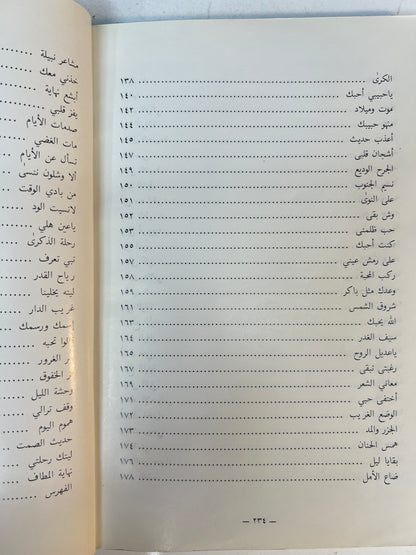 الكرى ١٣٨
ياحبيبي أحبك ١٤٠
موت وميلاد ١٤٢
منهو حبيبك ١٤٤
أعذب حديث ١٤٥
أشجان قلبي ١٤٧
الجرح الوديع ١٤٩
نسيم الجنوب ١٥٠
على النوى ١٥١
وش بقى ١٥٢
حب ظلمني ١٥٣
كنت أحبك ١٥٥
على رمش عيني ١٥٧
ركب المحبة ١٥٨
وعدك مثل باكر ١٥٩
شروق الشمس ١٦١
الله يحبك ١٦٣
سيف الغدر ١٦٤
ياعديل الروح ١٦٥
رغبتي تبقى ١٦٧
معاني الشعر ١٦٩
أختفى حبي ١٧١
الوضع الغريب ١٧٢
الجزر والمد ١٧٣
همس الحنان ١٧٤
بقايا ليل ١٧٦
ضاع الأمل ١٧٨
— ٢٣٤ —
مشاعر نبيلة
خذني معك
أبشع نهاية
يفز قلبي
صدمات الأيام
مات الغضي
تسأل عن الأيام
ألا وشلون ننسى
من بادي الوقت
لانسيت الود
ياعين هلي
رحلة الذكرى
تبي تعرف
رياح القدر
ليته يخلينا
غريب الدار
أسمك ورسمك
الوا تحبه
الغرور
الخفوق
وحشة الليل
وقف ترالي
هموم اليوم
حديث الصمت
ليتك رحلتي
نهاية المطاف
الفهرس